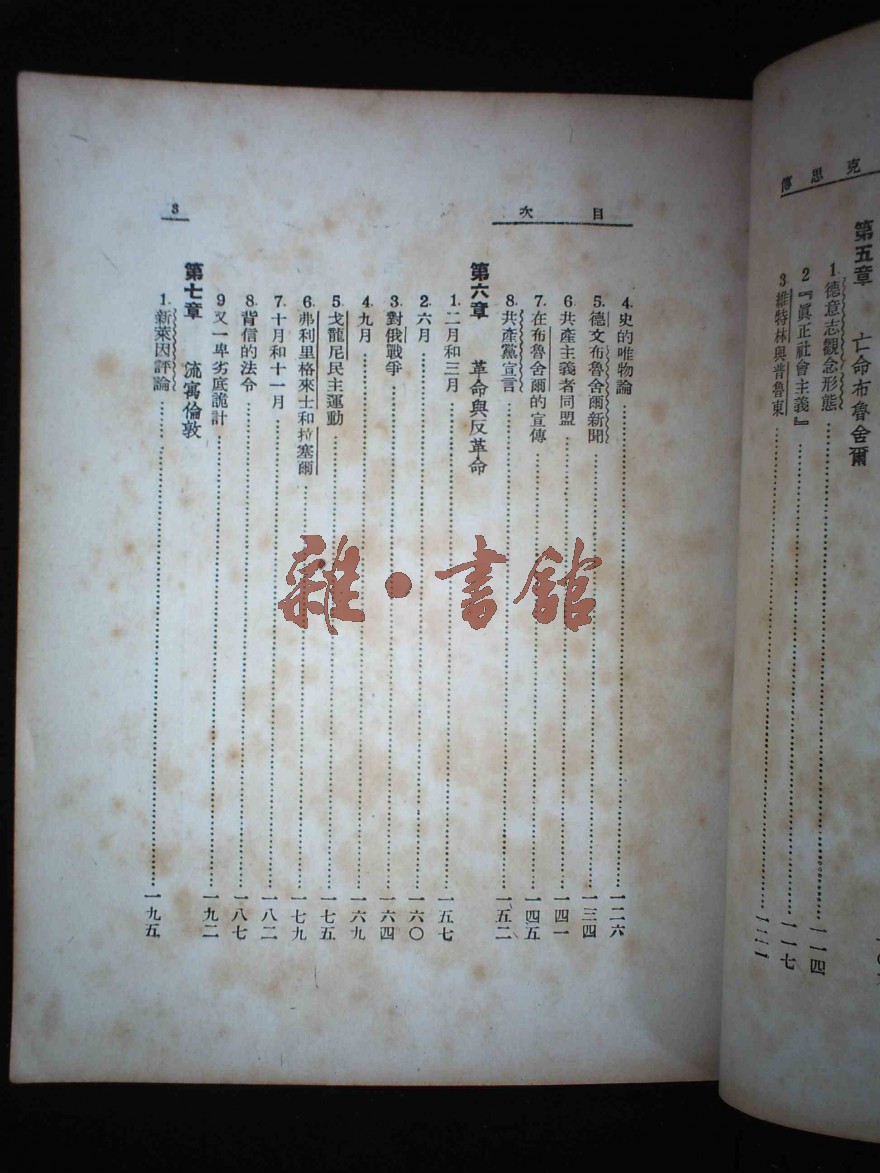 克思傳
第五章 亡命布魯舍爾
1. 德意志觀念形態……一一四
2 『眞正社會主義』……一一七
3. 維特林與普魯東
目次
3
4. 史的唯物論……一二六
5. 德文布魯舍爾新聞……一三四
6 共產主義者同盟……一四一
7. 在布魯舍爾的宣傳……一四五
8. 共產黨宣言……一五二
第六章 革命與反革命
1. 二月和三月……一五七
2. 六月……一六〇
3. 對俄戰爭……一六四
4. 九月……一六九
5. 戈龍尼民主運動……一七五
6. 弗利里格來士和拉塞爾……一七九
7. 十月和十一月……一八二
8. 背信的法令……一八七
9 又一卑劣底詭計……一九二
第七章 流寓倫敦
1. 新萊因評論……一九五
雜·書館